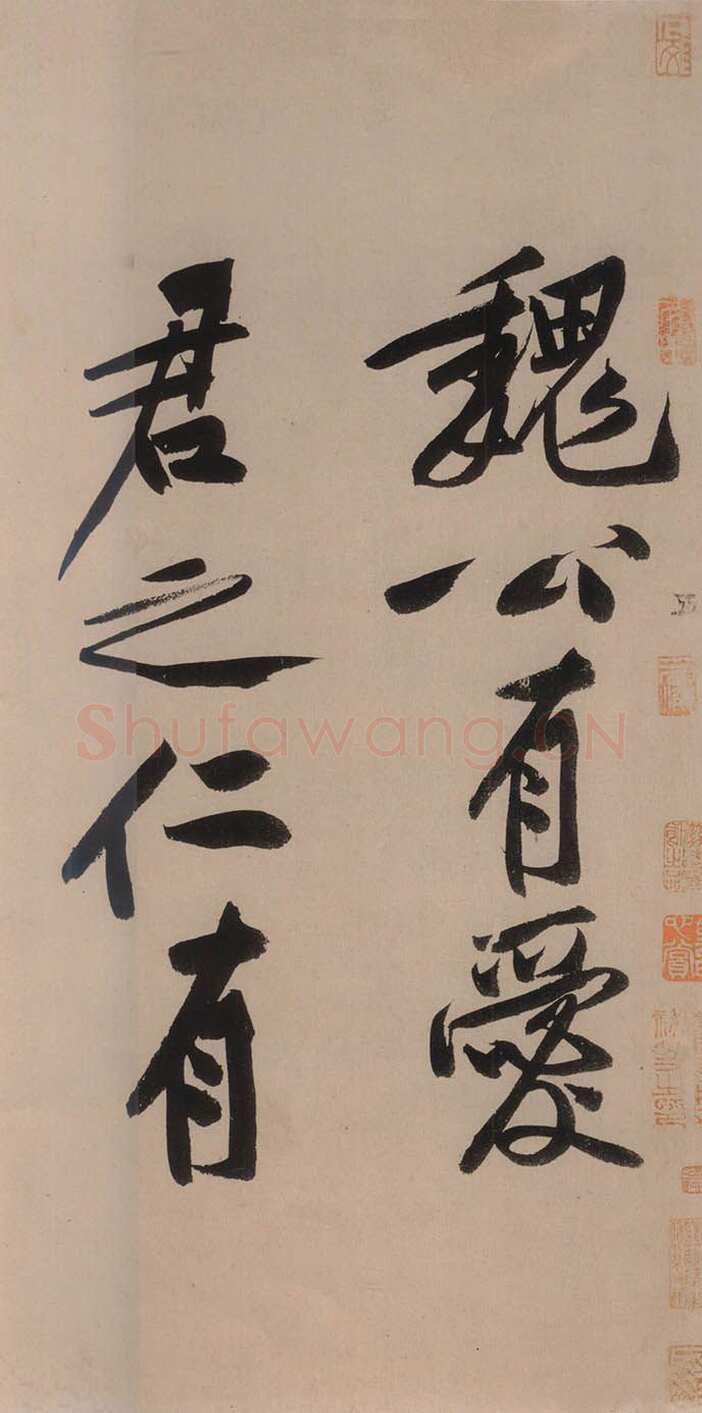 魏公有愛
君之仁有
Shufawang.CN